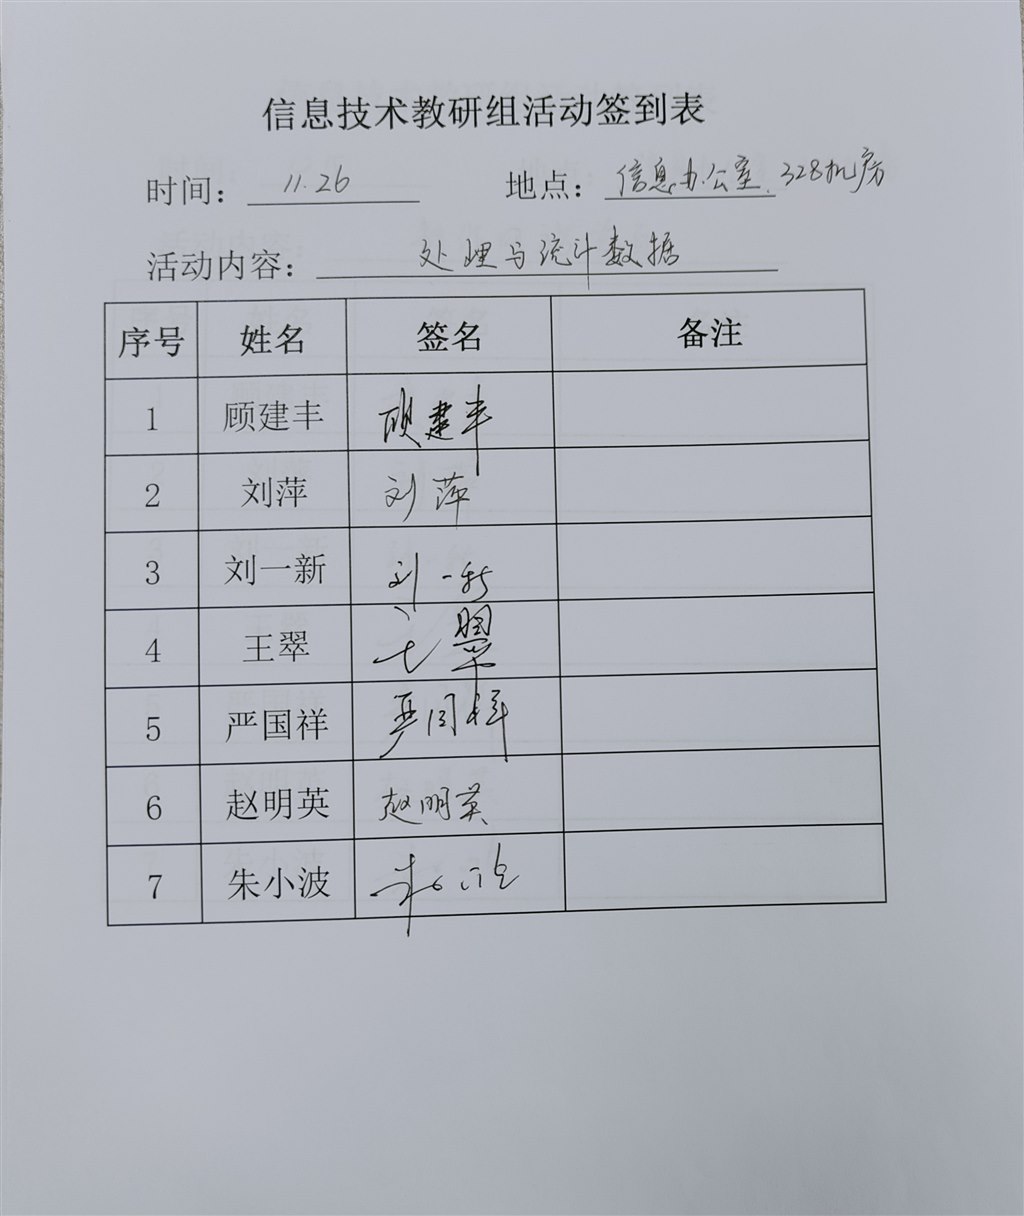 信息技术教研组活动签到表
时间： 11.26 地点： 信息办公室、328机房
活动内容： 处理与统计数据
序号 姓名 签名 备注
1 顾建丰 顾建丰
2 刘萍 刘萍
3 刘一新 刘一新
4 王翠 王翠
5 严国祥 严国祥
6 赵明英 赵明英
7 朱小波 朱小波